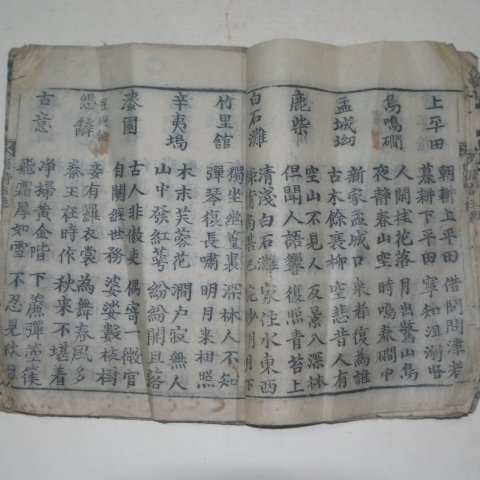 上平田
朝耕上平田 借問問津者
暮耕下平田 寧知沮溺賢
鳥鳴磵
人閒桂花落 月出驚山鳥
夜静春山空 時鳴春磵中
孟城坳
新家孟城口 來者復為誰
古木餘衰柳 空悲昔人有
鹿柴
空山不見人 反景入深林
但聞人語響 復照青苔上
白石灘
清淺白石灘 家住水東西
浣紗明月下
竹里館
獨坐幽篁裏 深林人不知
彈琴復長嘯 明月來相照
辛夷塢
木末芙蓉花 澗戶寂無人
山中發紅萼 紛紛開且落
漆園
古人非傲吏 偶寄一微官
自闕經世務 婆娑數枝樹
怨辭 崔國輔
妾有羅衣裳 為舞春風多
秦王在時作 秋來不堪着
古意
淨掃黃金階 下簾彈箜篌
飛霜厚如雪 不忍見秋月